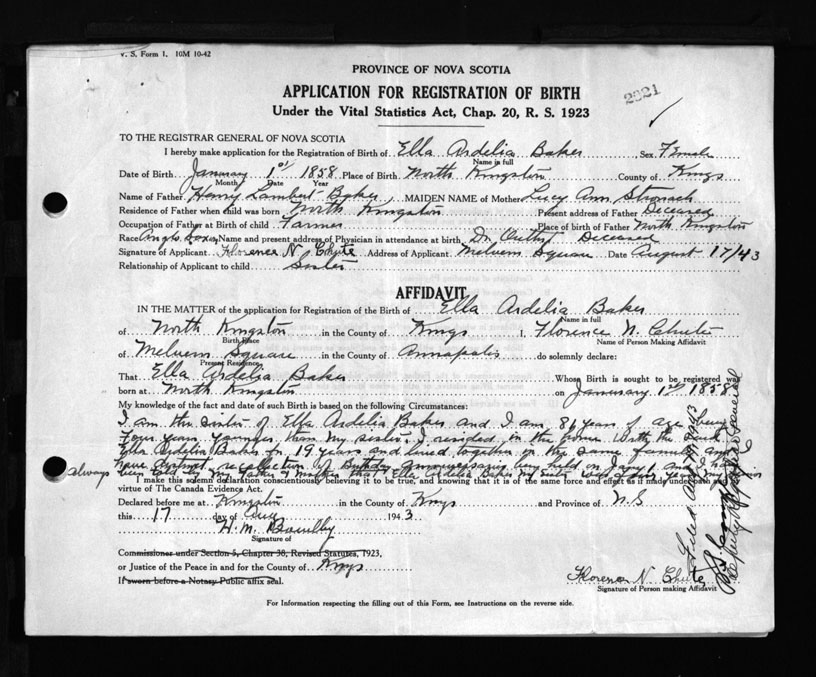 V. S. Form 1. 10M 10-42
PROVINCE OF NOVA SCOTIA
2221
APPLICATION FOR REGISTRATION OF BIRTH
Under the Vital Statistics Act, Chap. 20, R. S. 1923
TO THE REGISTRAR GENERAL OF NOVA SCOTIA
I hereby make application for the Registration of Birth of Ella Ardelia Baker Sex Female
Name in full
Date of Birth January 1st 1858 Place of Birth North Kingston County of Kings
Month Date Year
Name of Father Henry Lambert Baker, MAIDEN NAME of Mother Lucy Ann Stronach
Residence of Father when child was born North Kingston Present address of Father Deceased
Occupation of Father at Birth of child Farmer Place of birth of Father North Kingston
Race Anglo Saxon Name and present address of Physician in attendance at birth Dr. Deceased
Signature of Applicant Florence N. Chute Address of Applicant Melvern Square Date August 17/43
Relationship of Applicant to child Sister
AFFIDAVIT
IN THE MATTER of the application for Registration of the Birth of Ella Ardelia Baker
Name in full
of North Kingston in the County of Kings I, Florence N. Chute
Birth Place Name of Person Making Affidavit
of Melvern Square in the County of Annapolis do solemnly declare:
Present Residence
That Ella Ardelia Baker Whose Birth is sought to be registered was
born at North Kingston on January 1st 1858
My knowledge of the fact and date of such Birth is based on the following Circumstances:
I am the sister of Ella Ardelia Baker and I am 81 years of age being
four years younger than my sister. I resided in the home with the said
Ella Ardelia Baker for 19 years and lived together in the same family and
have distinct recollection of Birthday anniversaries being held on Jany 1 and I have
always been told by my father & mother that Ella Ardelia Baker my sister was
I make this solemn declaration conscientiously believing it to be true, and knowing that it is of the same force and effect as if made under oath by
virtue of The Canada Evidence Act.
Declared before me at Kingston in the County of Kings and Province of N.S
this 17 day of Aug 1943
H. M.
Signature of
Commissioner under Section 5, Chapter 38, Revised Statutes, 1923,
or Justice of the Peace in and for the County of Kings
If sworn before a Notary Public affix seal.
Florence N. Chute
Signature of Person making Affidavit
For Information respecting the filling out of this Form, see Instructions on the reverse side.
Filed Aug 19 1943
Deputy Registrar General